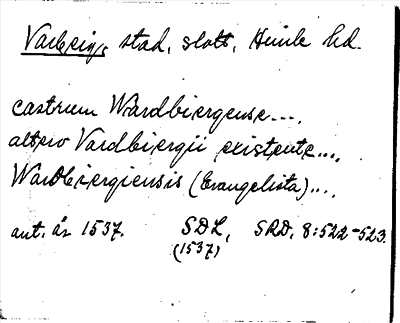 Varberg, stad, slott, Himle hd.
castrum Wardbiergense...,
altero Vardbiergii existente...,
Wardbiergiensis (Evangelista)...,
ant. år 1537. SDL, SRD, 8:522-523.
(1537)